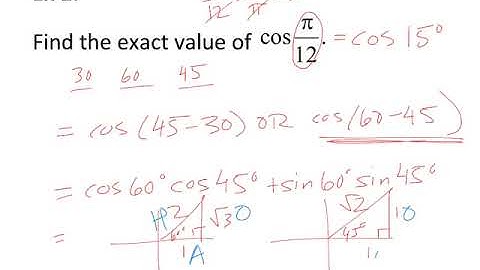 12 π
Find the exact value of cos π/12. = cos 15°
30 60 45
= cos(45-30) OR cos(60-45)
= cos60°cos45° + sin60°sin45°
H 2 √3 O √2 1 O
= 60° 45°
1 A 1